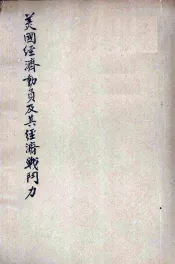 美國經濟動員及其經濟戰鬥力